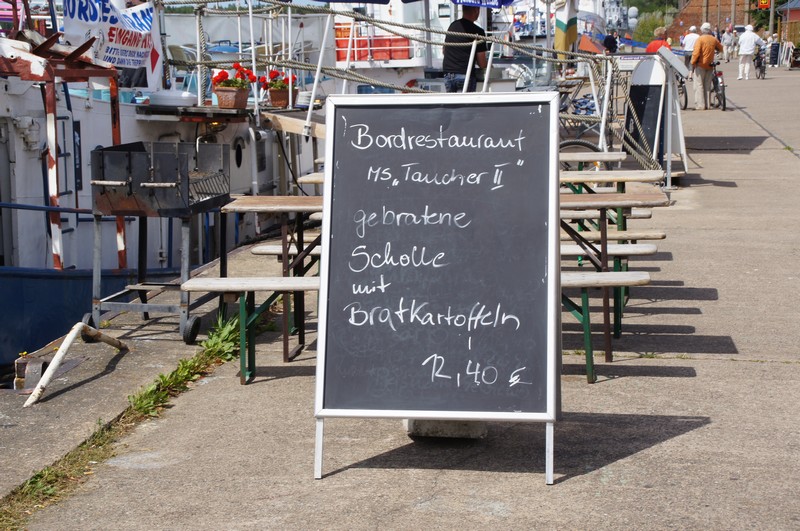 EINGANG
Bordrestaurant
MS „Taucher II"
gebratene
Scholle
mit
Bratkartoffeln
12,40 €